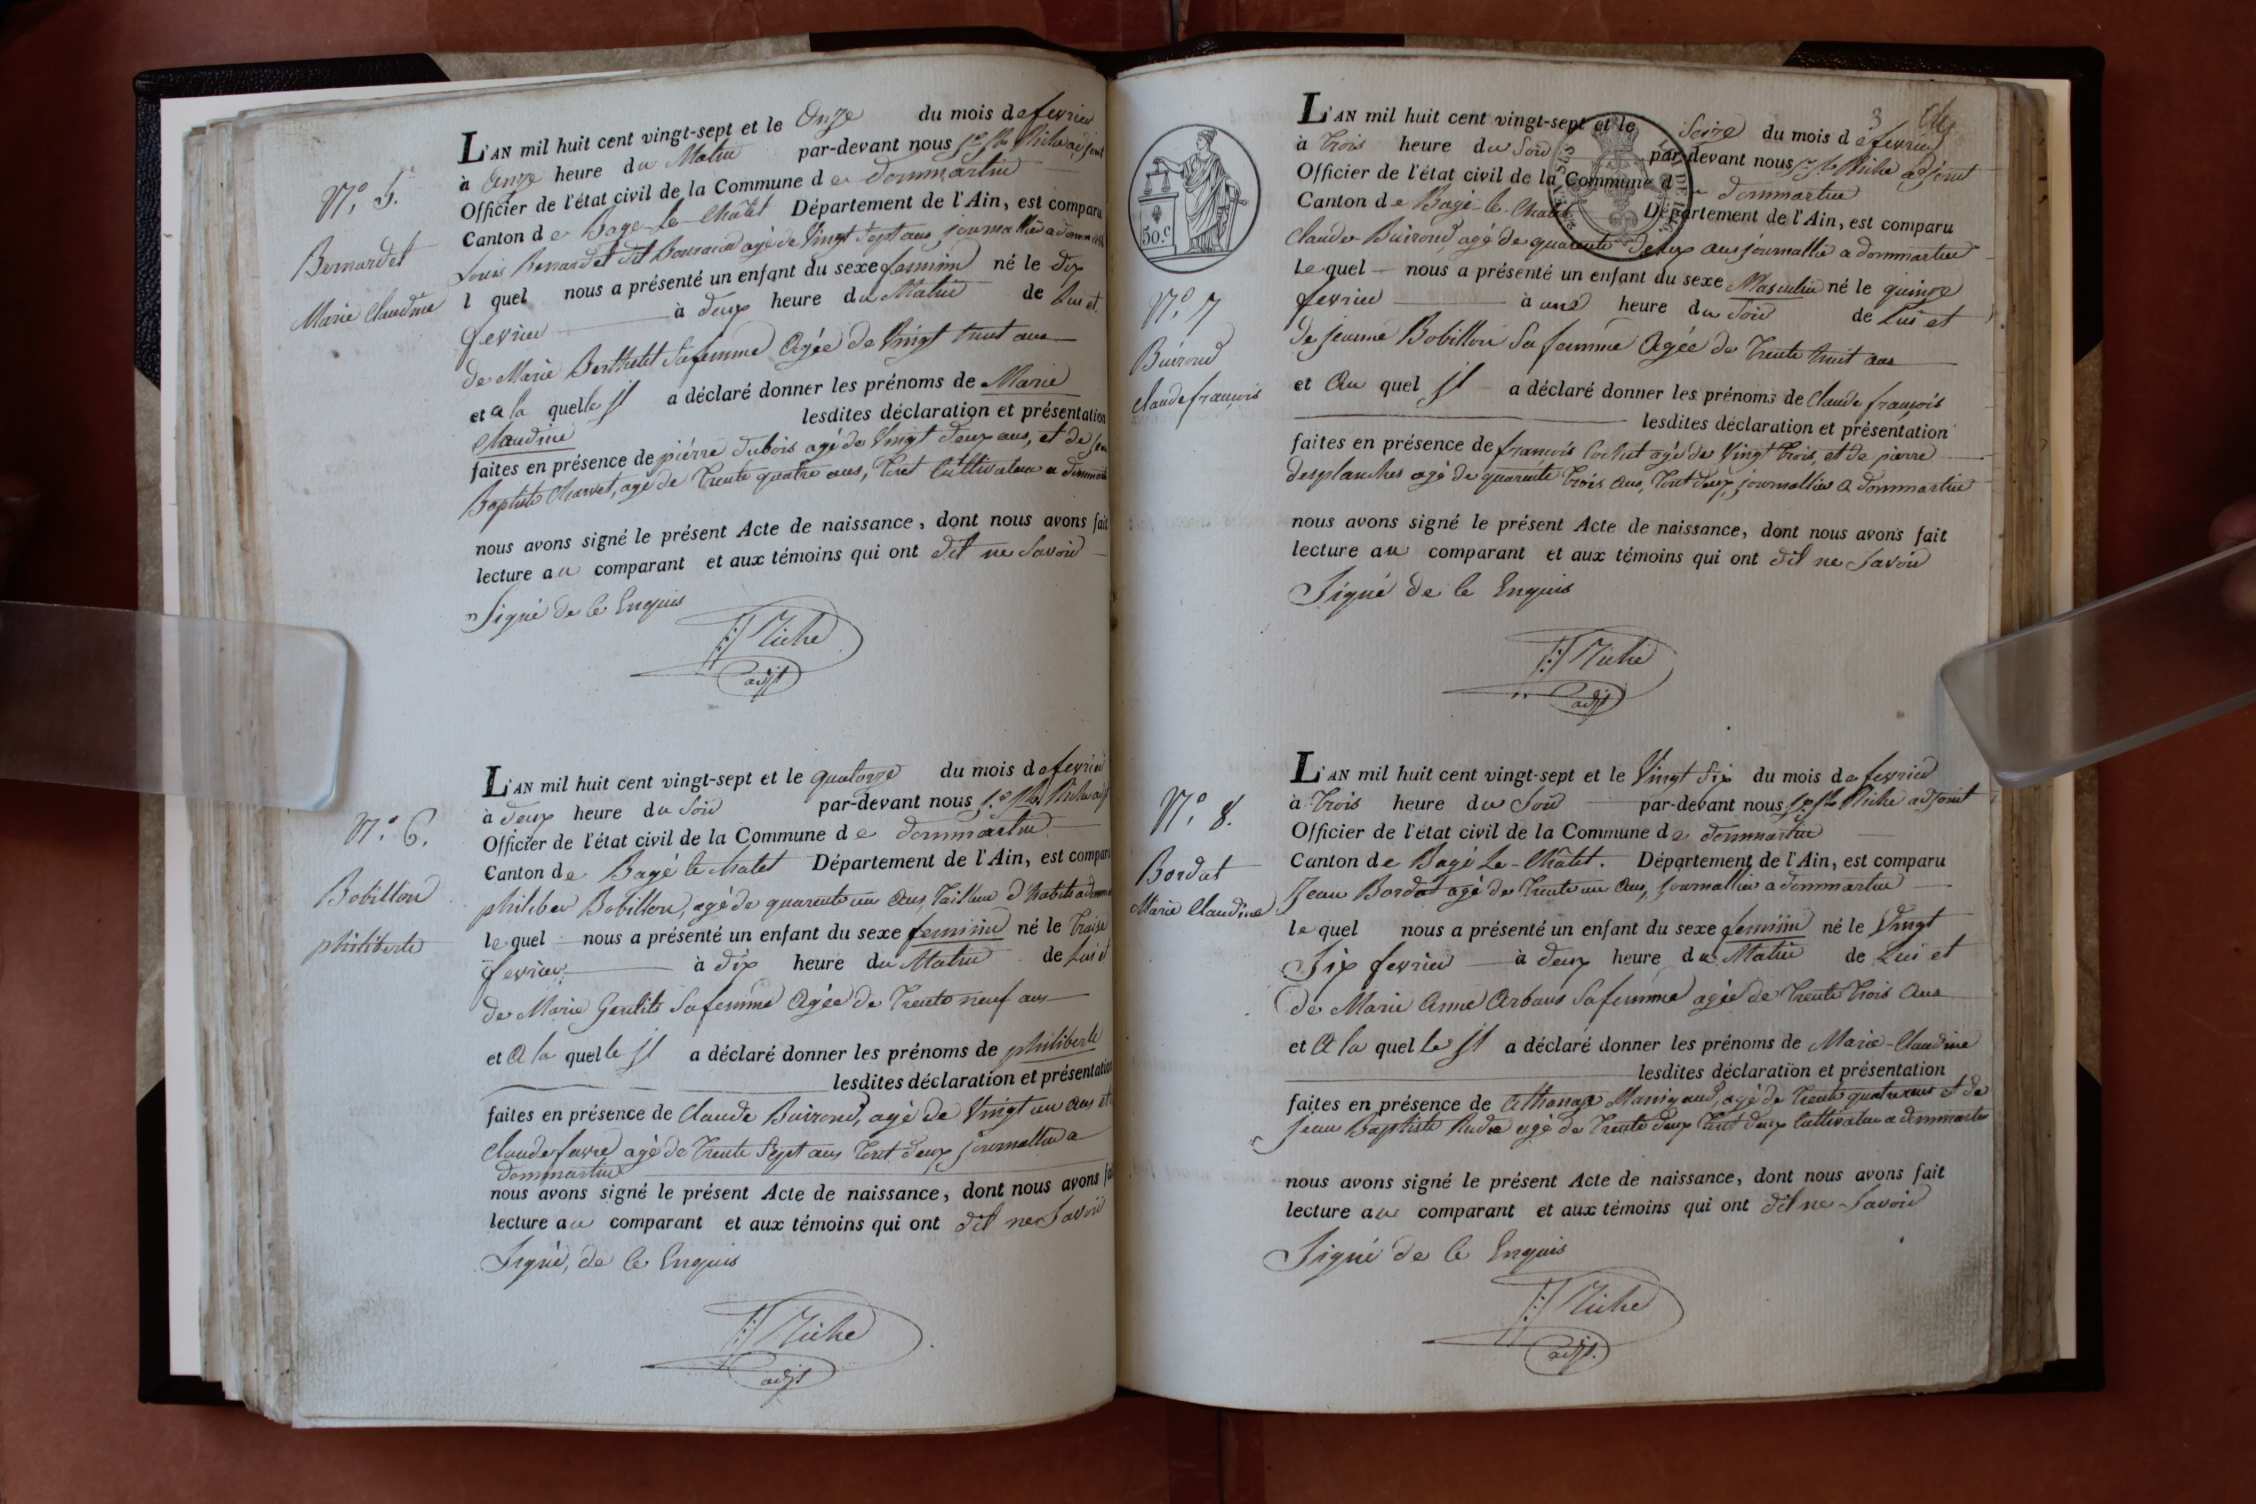 N.o 5.
Bernardet
Marie Claudine
L'AN mil huit cent vingt-sept et le Onze du mois de fevrier
à Onze heure du Matin par-devant nous adjoint
Officier de l'état civil de la Commune de dommartin
Canton de Bagé-le-Châtel Département de l'Ain, est comparu
Louis Bernardet dit agé de Vingt Sept ans, journallier a dommartin
l quel nous a présenté un enfant du sexe feminin né le dix
fevrier à deux heure du Matin de Lui et
de Marie Berthelet Sa femme Agée de Vingt huit ans
et a la quelle il a déclaré donner les prénoms de Marie
Claudine lesdites déclaration et présentation
faites en présence de pierre dubois agé de Vingt deux ans, et de jean
Baptiste Charvet, agé de Trente quatre ans, Tout Cultivateur a dommartin
nous avons signé le présent Acte de naissance, dont nous avons fait
lecture au comparant et aux témoins qui ont dit ne Savoir
Signé de ce Enquis
Miche
adjt
N.o 6.
Bobillon
philiberte
L'AN mil huit cent vingt-sept et le quatorze du mois de fevrier
à deux heure du Soir par-devant nous
Officier de l'état civil de la Commune de dommartin
Canton de Bagé le Chatel Département de l'Ain, est comparu
philiber Bobillon, agé de quarente un Ans, Tailleur d'habits a dommartin
le quel nous a présenté un enfant du sexe feminin né le Traise
fevrier à dix heure du Matin de Lui et
de Marie Gentils Sa femme Agée de Trente neuf ans
et A la quelle il a déclaré donner les prénoms de philiberte
lesdites déclaration et présentation
faites en présence de Claude Buiron, agé de Vingt un Ans et
Claude favre agé de Trente Sept ans Tout deux journallier a
dommartin
nous avons signé le présent Acte de naissance, dont nous avons fait
lecture au comparant et aux témoins qui ont dit ne Savoir
Signé, de ce Enquis
Miche
adjt
3
50.c
N.o 7
Buirond
Claude françois
L'AN mil huit cent vingt-sept et le Seize du mois de fevrier
à Trois heure du Soir par-devant nous adjoint
Officier de l'état civil de la Commune de dommartin
Canton de Bagé-le-Chatel Département de l'Ain, est comparu
Claude Buirond, agé de quarente deux ans journallier a dommartin
Le quel nous a présenté un enfant du sexe Masculin né le quinze
fevrier à une heure du Soir de Lui et
de jeanne Bobillon Sa femme Agée de Trente huit ans
et Au quel il a déclaré donner les prénoms de Claude françois
lesdites déclaration et présentation
faites en présence de françois Cochet agé de Vingt Trois, et de pierre
desplanches agé de quarente Trois Ans, Tout deux journallier a dommartin
nous avons signé le présent Acte de naissance, dont nous avons fait
lecture au comparant et aux témoins qui ont dit ne Savoir
Signé de ce Enquis
Miche
adjt
N.o 8.
Bordat
Marie Claudine
L'AN mil huit cent vingt-sept et le Vingt Six du mois de fevrier
à Trois heure du Soir par-devant nous adjoint
Officier de l'état civil de la Commune de dommartin
Canton de Bagé Le-Châtel. Département de l'Ain, est comparu
Jean Bordat agé de Trente un Ans, journallier a dommartin
le quel nous a présenté un enfant du sexe feminin né le Vingt
Six fevrier à deux heure du Matin de Lui et
de Marie Anne Arbaus Sa femme agée de Trente Trois Ans
et A la quelle il a déclaré donner les prénoms de Marie-Claudine
lesdites déclaration et présentation
faites en présence de Athanase Manigaud, agé de Trente quatre ans et de
Jean Baptiste agé de Trente deux Tout deux Cultivateur a dommartin
nous avons signé le présent Acte de naissance, dont nous avons fait
lecture au comparant et aux témoins qui ont dit ne Savoir
Signé de ce Enquis
Miche
adjt.